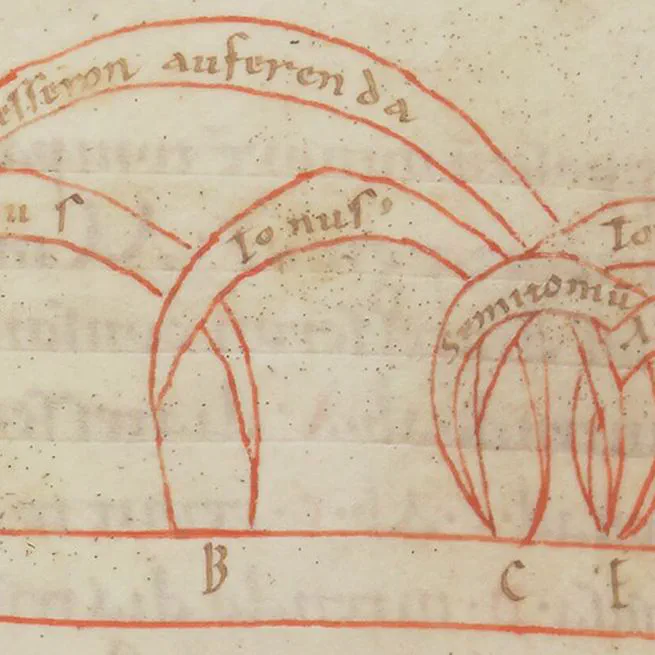 esseron auferenda
us
Tonus
To
Semitoniū
B C E